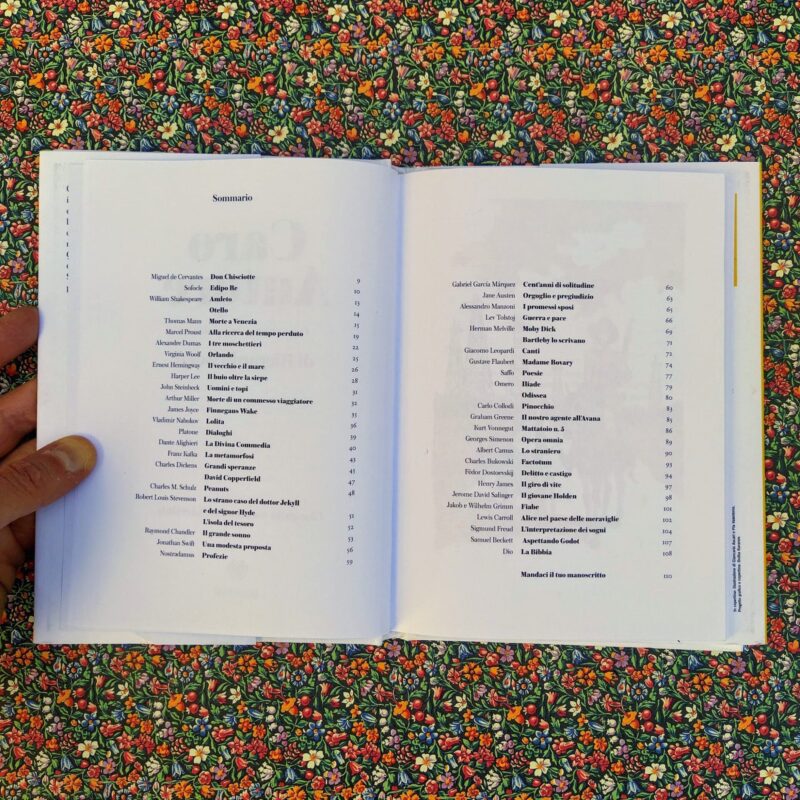 Sommario
Miguel de Cervantes Don Chisciotte 9
Sofocle Edipo Re 10
William Shakespeare Amleto 13
Otello 14
Thomas Mann Morte a Venezia 15
Marcel Proust Alla ricerca del tempo perduto 19
Alexandre Dumas I tre moschettieri 22
Virginia Woolf Orlando 25
Ernest Hemingway Il vecchio e il mare 26
Harper Lee Il buio oltre la siepe 28
John Steinbeck Uomini e topi 31
Arthur Miller Morte di un commesso viaggiatore 32
James Joyce Finnegans Wake 35
Vladimir Nabokov Lolita 36
Platone Dialoghi 39
Dante Alighieri La Divina Commedia 40
Franz Kafka La metamorfosi 43
Charles Dickens Grandi speranze 45
David Copperfield 47
Charles M. Schulz Peanuts 48
Robert Louis Stevenson Lo strano caso del dottor Jekyll
e del signor Hyde 51
L'isola del tesoro 52
Raymond Chandler Il grande sonno 53
Jonathan Swift Una modesta proposta 56
Nostradamus Profezie 59
Gabriel García Márquez Cent'anni di solitudine 60
Jane Austen Orgoglio e pregiudizio 63
Alessandro Manzoni I promessi sposi 65
Lev Tolstoj Guerra e pace 66
Herman Melville Moby Dick 69
Bartleby lo scrivano 71
Giacomo Leopardi Canti 72
Gustave Flaubert Madame Bovary 74
Saffo Poesie 77
Omero Iliade 79
Odissea 80
Carlo Collodi Pinocchio 83
Graham Greene Il nostro agente all'Avana 85
Kurt Vonnegut Mattatoio n. 5 86
Georges Simenon Opera omnia 89
Albert Camus Lo straniero 90
Charles Bukowski Factotum 93
Fëdor Dostoevskij Delitto e castigo 94
Henry James Il giro di vite 97
Jerome David Salinger Il giovane Holden 98
Jakob e Wilhelm Grimm Fiabe 101
Lewis Carroll Alice nel paese delle meraviglie 102
Sigmund Freud L'interpretazione dei sogni 104
Samuel Beckett Aspettando Godot 107
Dio La Bibbia 108
Mandaci il tuo manoscritto 110